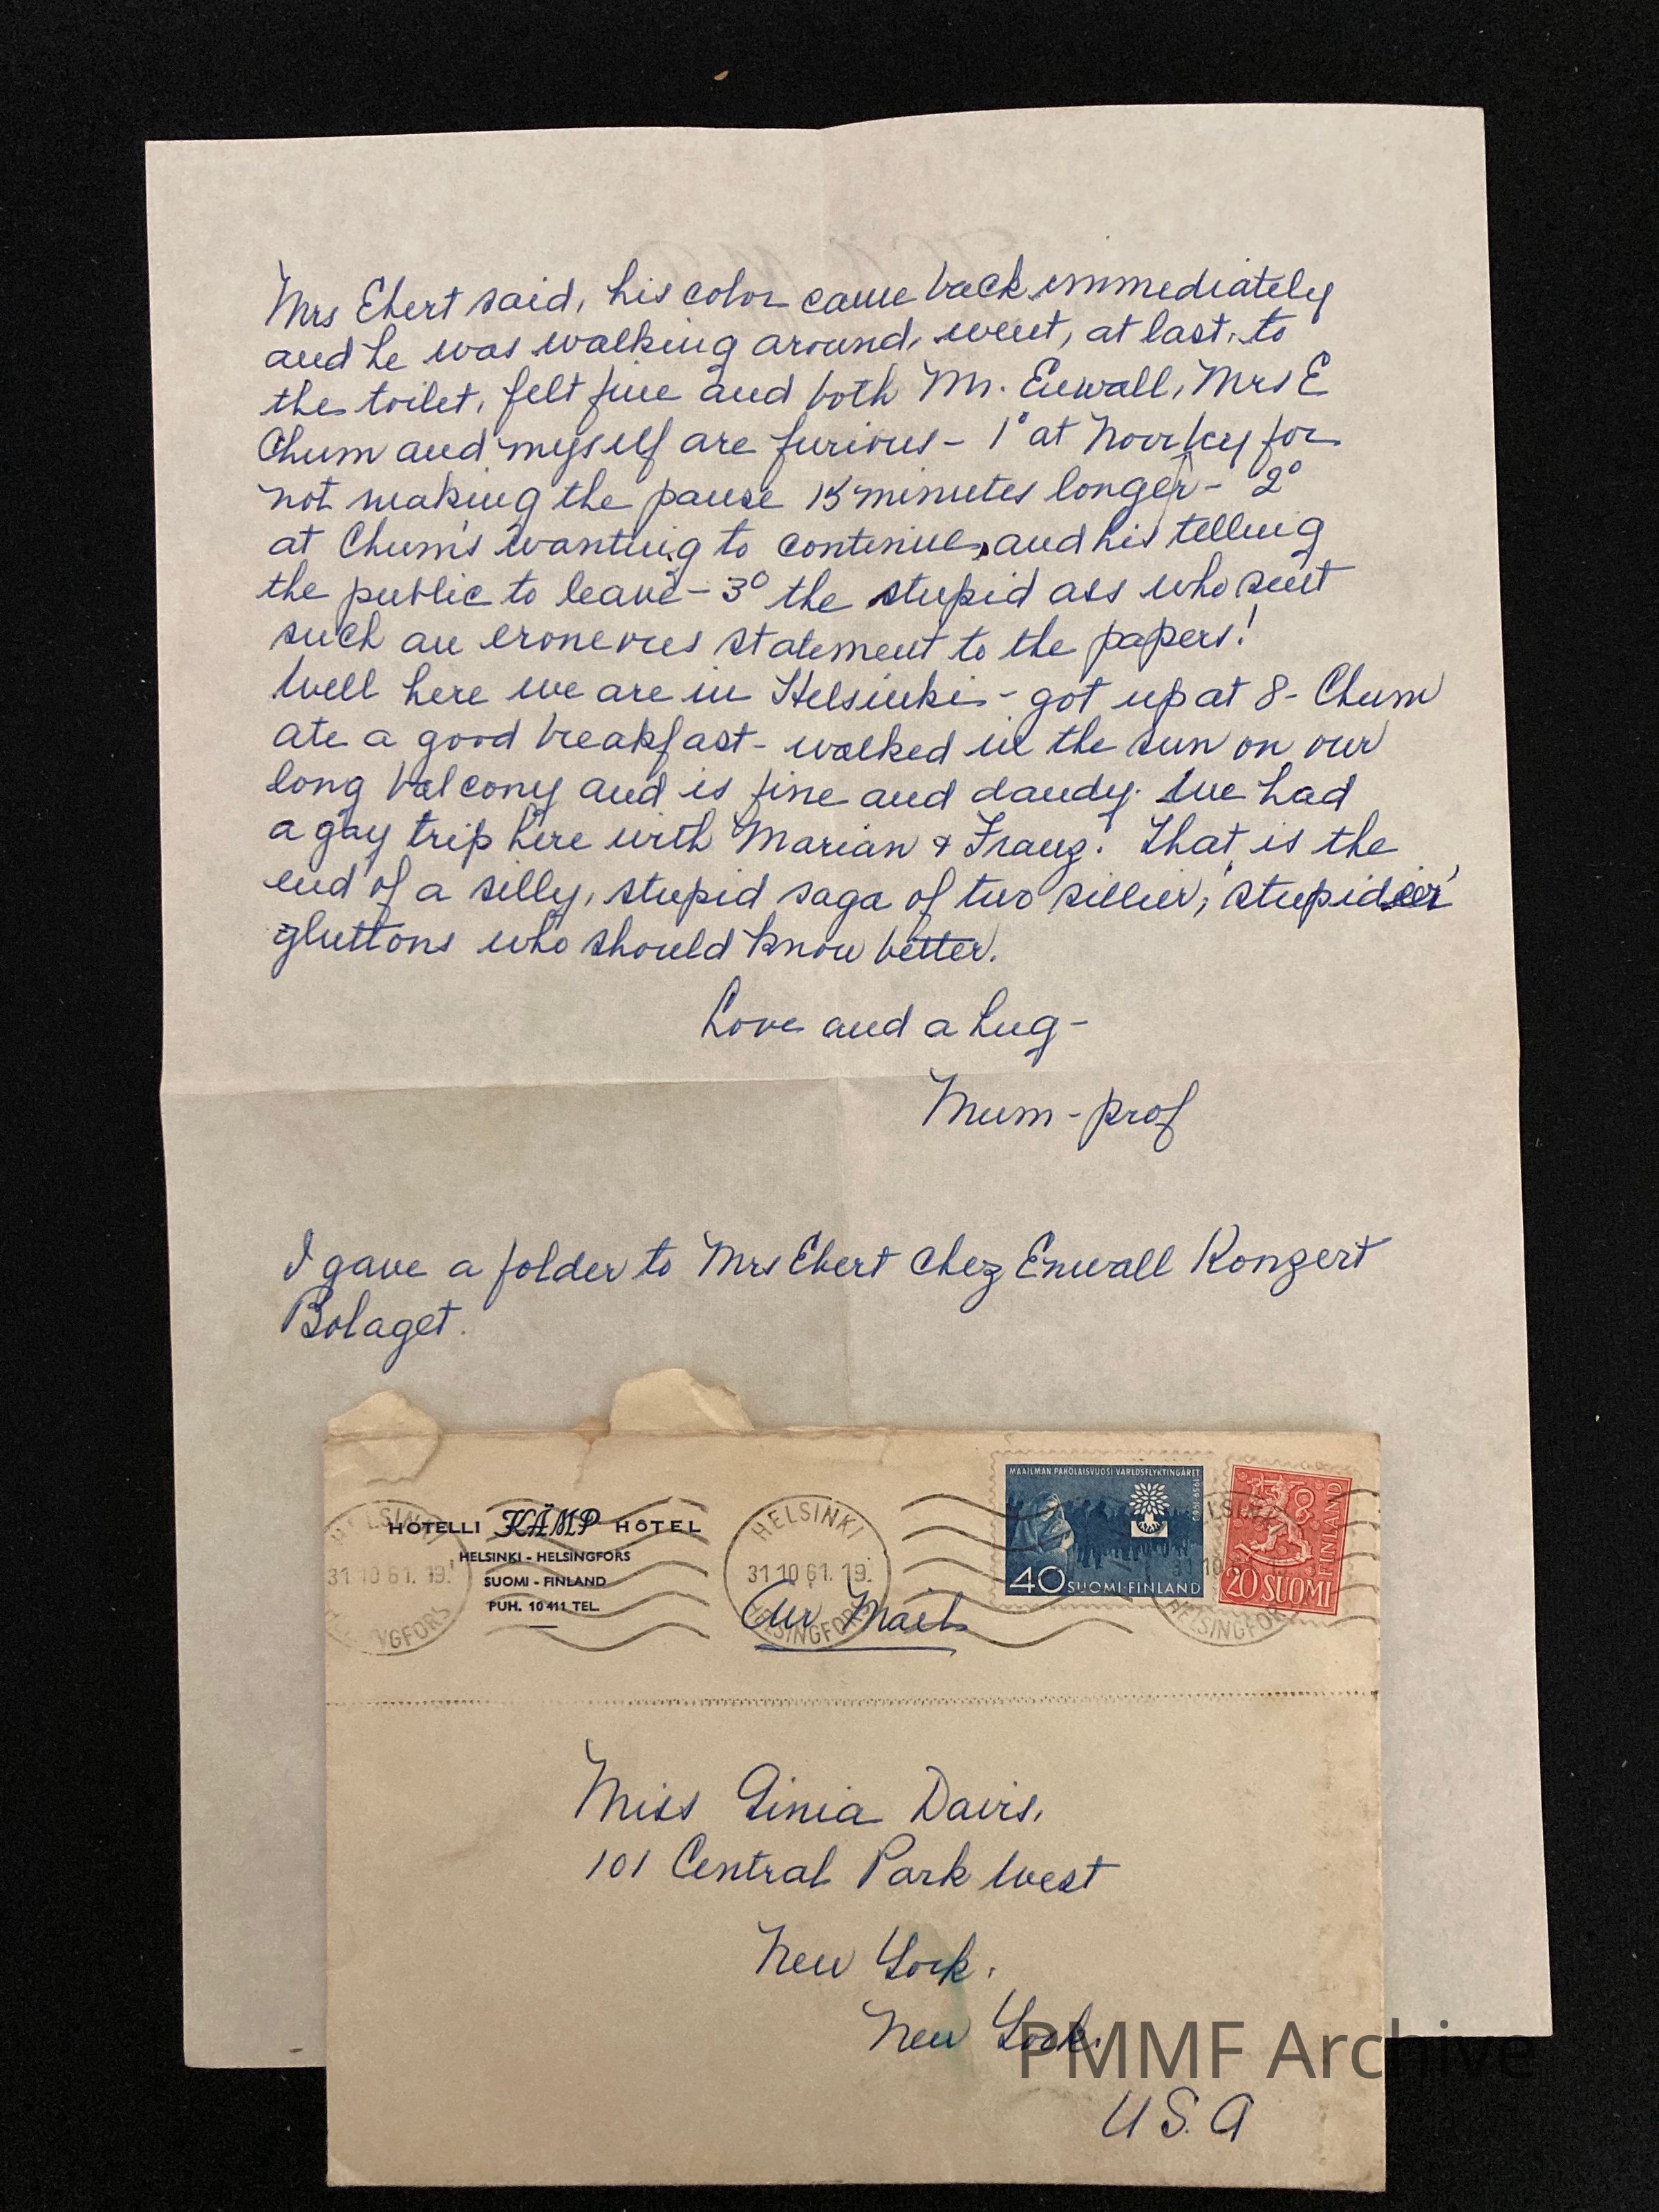 Mrs Ebert said, his color came back immediately
and he was walking around, went, at last, to
the toilet, felt fine and both Mr. Enwall, Mrs E
Chum and myself are furious - 1° at Noorky for
not making the pause 15 minutes longer - 2°
at Chum's wanting to continue, and his telling
the public to leave - 3° the stupid ass who sent
such an eroneous statement to the papers!
Well here we are in Helsinki - got up at 8 - Chum
ate a good breakfast - walked in the sun on our
long balcony and is fine and dandy. We had
a gay trip here with Marian & Franz. That is the
end of a silly, stupid saga of two sillier, 'stupideer'
gluttons who should know better.
Love and a hug -
Mum-prof
I gave a folder to Mrs Ebert Chez Enwall Konzert
Bolaget.
HOTELLI KÄMP HOTEL
HELSINKI - HELSINGFORS
SUOMI - FINLAND
PUH. 10 411 TEL.
HELSINKI
31 10 61. 19.
HELSINGFORS
HELSINKI
31 10 61. 19.
HELSINGFORS
MAAILMAN PAKOLAISVUOSI VÄRLDSFLYKTINGÅRET
1959-1960
40 SUOMI-FINLAND
20 SUOMI
FINLAND
HELSINGFORS
Air Mail
Miss Ginia Davis,
101 Central Park West
New York,
New York.
U.S.A
PMMF Archive